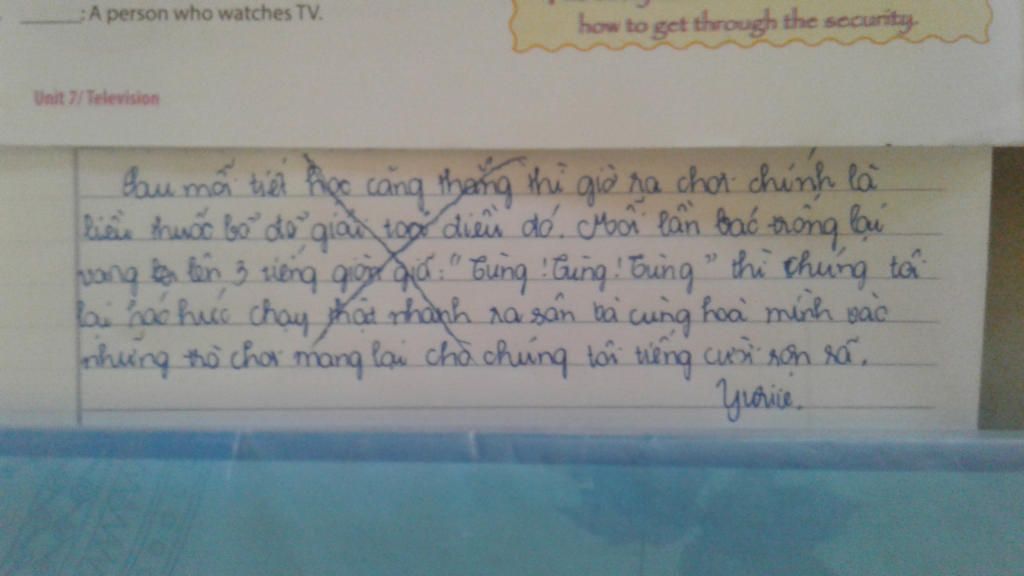 _____: A person who watches TV.
how to get through the security.
Unit 7/ Television
Sau mỗi tiết học căng thẳng thì giờ ra chơi chính là
liều thuốc bổ để giải toả điều đó. Mỗi lần bác trống lại
vang lên 3 tiếng giòn giã: "Tùng! Tùng! Tùng" thì chúng tôi
lại háo hức chạy thật nhanh ra sân và cùng hoà mình vào
những trò chơi mang lại cho chúng tôi tiếng cười rộn rã.